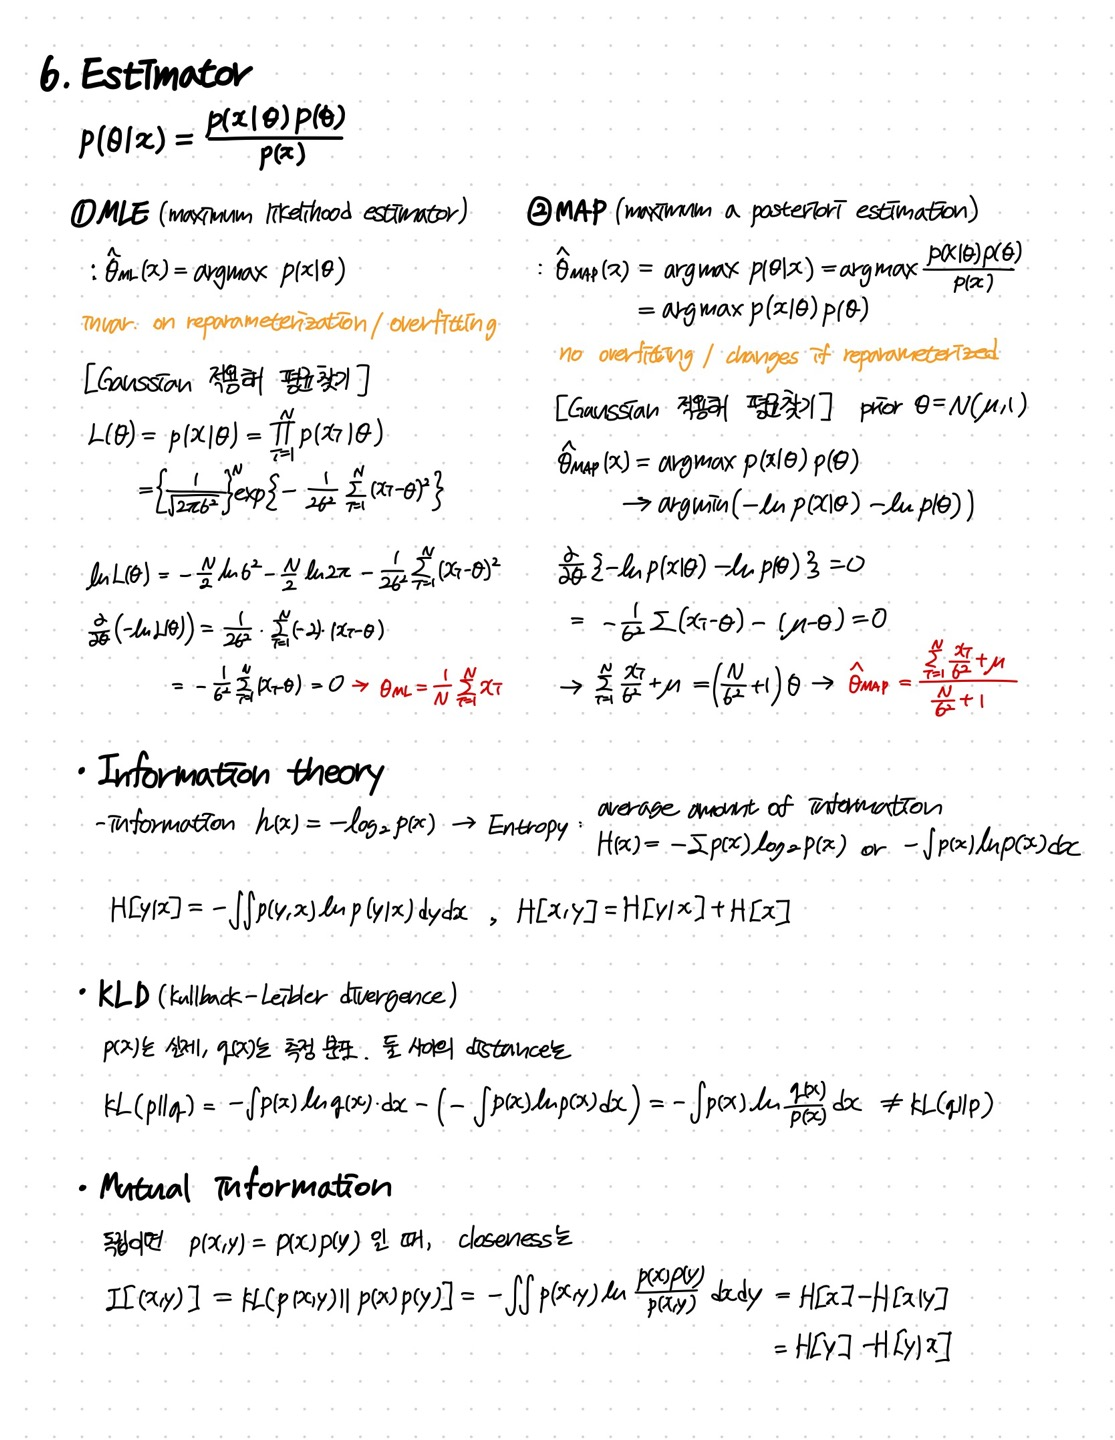 6. Estimator
p(θ|x) = p(x|θ)p(θ) / p(x)
① MLE (maximum likelihood estimator)
: θ̂_ML(x) = argmax p(x|θ)
invar. on reparameterization / overfitting
[Gaussian 적용해 평균찾기]
L(θ) = p(x|θ) = ∏_{i=1}^{N} p(x_i|θ)
= {1/√(2πσ²)}^N exp{- 1/(2σ²) Σ_{i=1}^{N} (x_i-θ)²}
ln L(θ) = - N/2 ln σ² - N/2 ln 2π - 1/(2σ²) Σ_{i=1}^{N} (x_i-θ)²
∂/∂θ (-ln L(θ)) = 1/(2σ²) · Σ_{i=1}^{N} (-2)·(x_i-θ)
= - 1/σ² Σ_{i=1}^{N} (x_i-θ) = 0 → θ_ML = 1/N Σ_{i=1}^{N} x_i
② MAP (maximum a posteriori estimation)
: θ̂_MAP(x) = argmax p(θ|x) = argmax p(x|θ)p(θ) / p(x)
= argmax p(x|θ) p(θ)
no overfitting / changes if reparameterized
[Gaussian 적용해 평균찾기] prior θ = N(μ,1)
θ̂_MAP(x) = argmax p(x|θ) p(θ)
→ argmin(-ln p(x|θ) - ln p(θ))
∂/∂θ {-ln p(x|θ) - ln p(θ)} = 0
= - 1/σ² Σ (x_i-θ) - (μ-θ) = 0
→ Σ_{i=1}^{N} x_i/σ² + μ = (N/σ² + 1) θ → θ̂_MAP = (Σ_{i=1}^{N} x_i/σ² + μ) / (N/σ² + 1)
· Information theory
- information h(x) = -log₂ p(x) → Entropy : average amount of information
H(x) = -Σ p(x) log₂ p(x) or -∫ p(x) ln p(x) dx
H[y|x] = -∬ p(y,x) ln p(y|x) dydx , H[x,y] = H[y|x] + H[x]
· KLD (Kullback-Leibler divergence)
p(x)는 실제, q(x)는 측정 분포. 둘 사이의 distance는
KL(p||q) = -∫ p(x) ln q(x)·dx - (-∫ p(x) ln p(x) dx) = -∫ p(x) ln q(x)/p(x) dx ≠ KL(q||p)
· Mutual information
독립이면 p(x,y) = p(x)p(y) 인 때, closeness는
I[(x,y)] = KL(p(x,y)|| p(x)p(y)] = -∬ p(x,y) ln p(x)p(y)/p(x,y) dxdy = H[x] - H[x|y]
= H[y] - H[y|x]